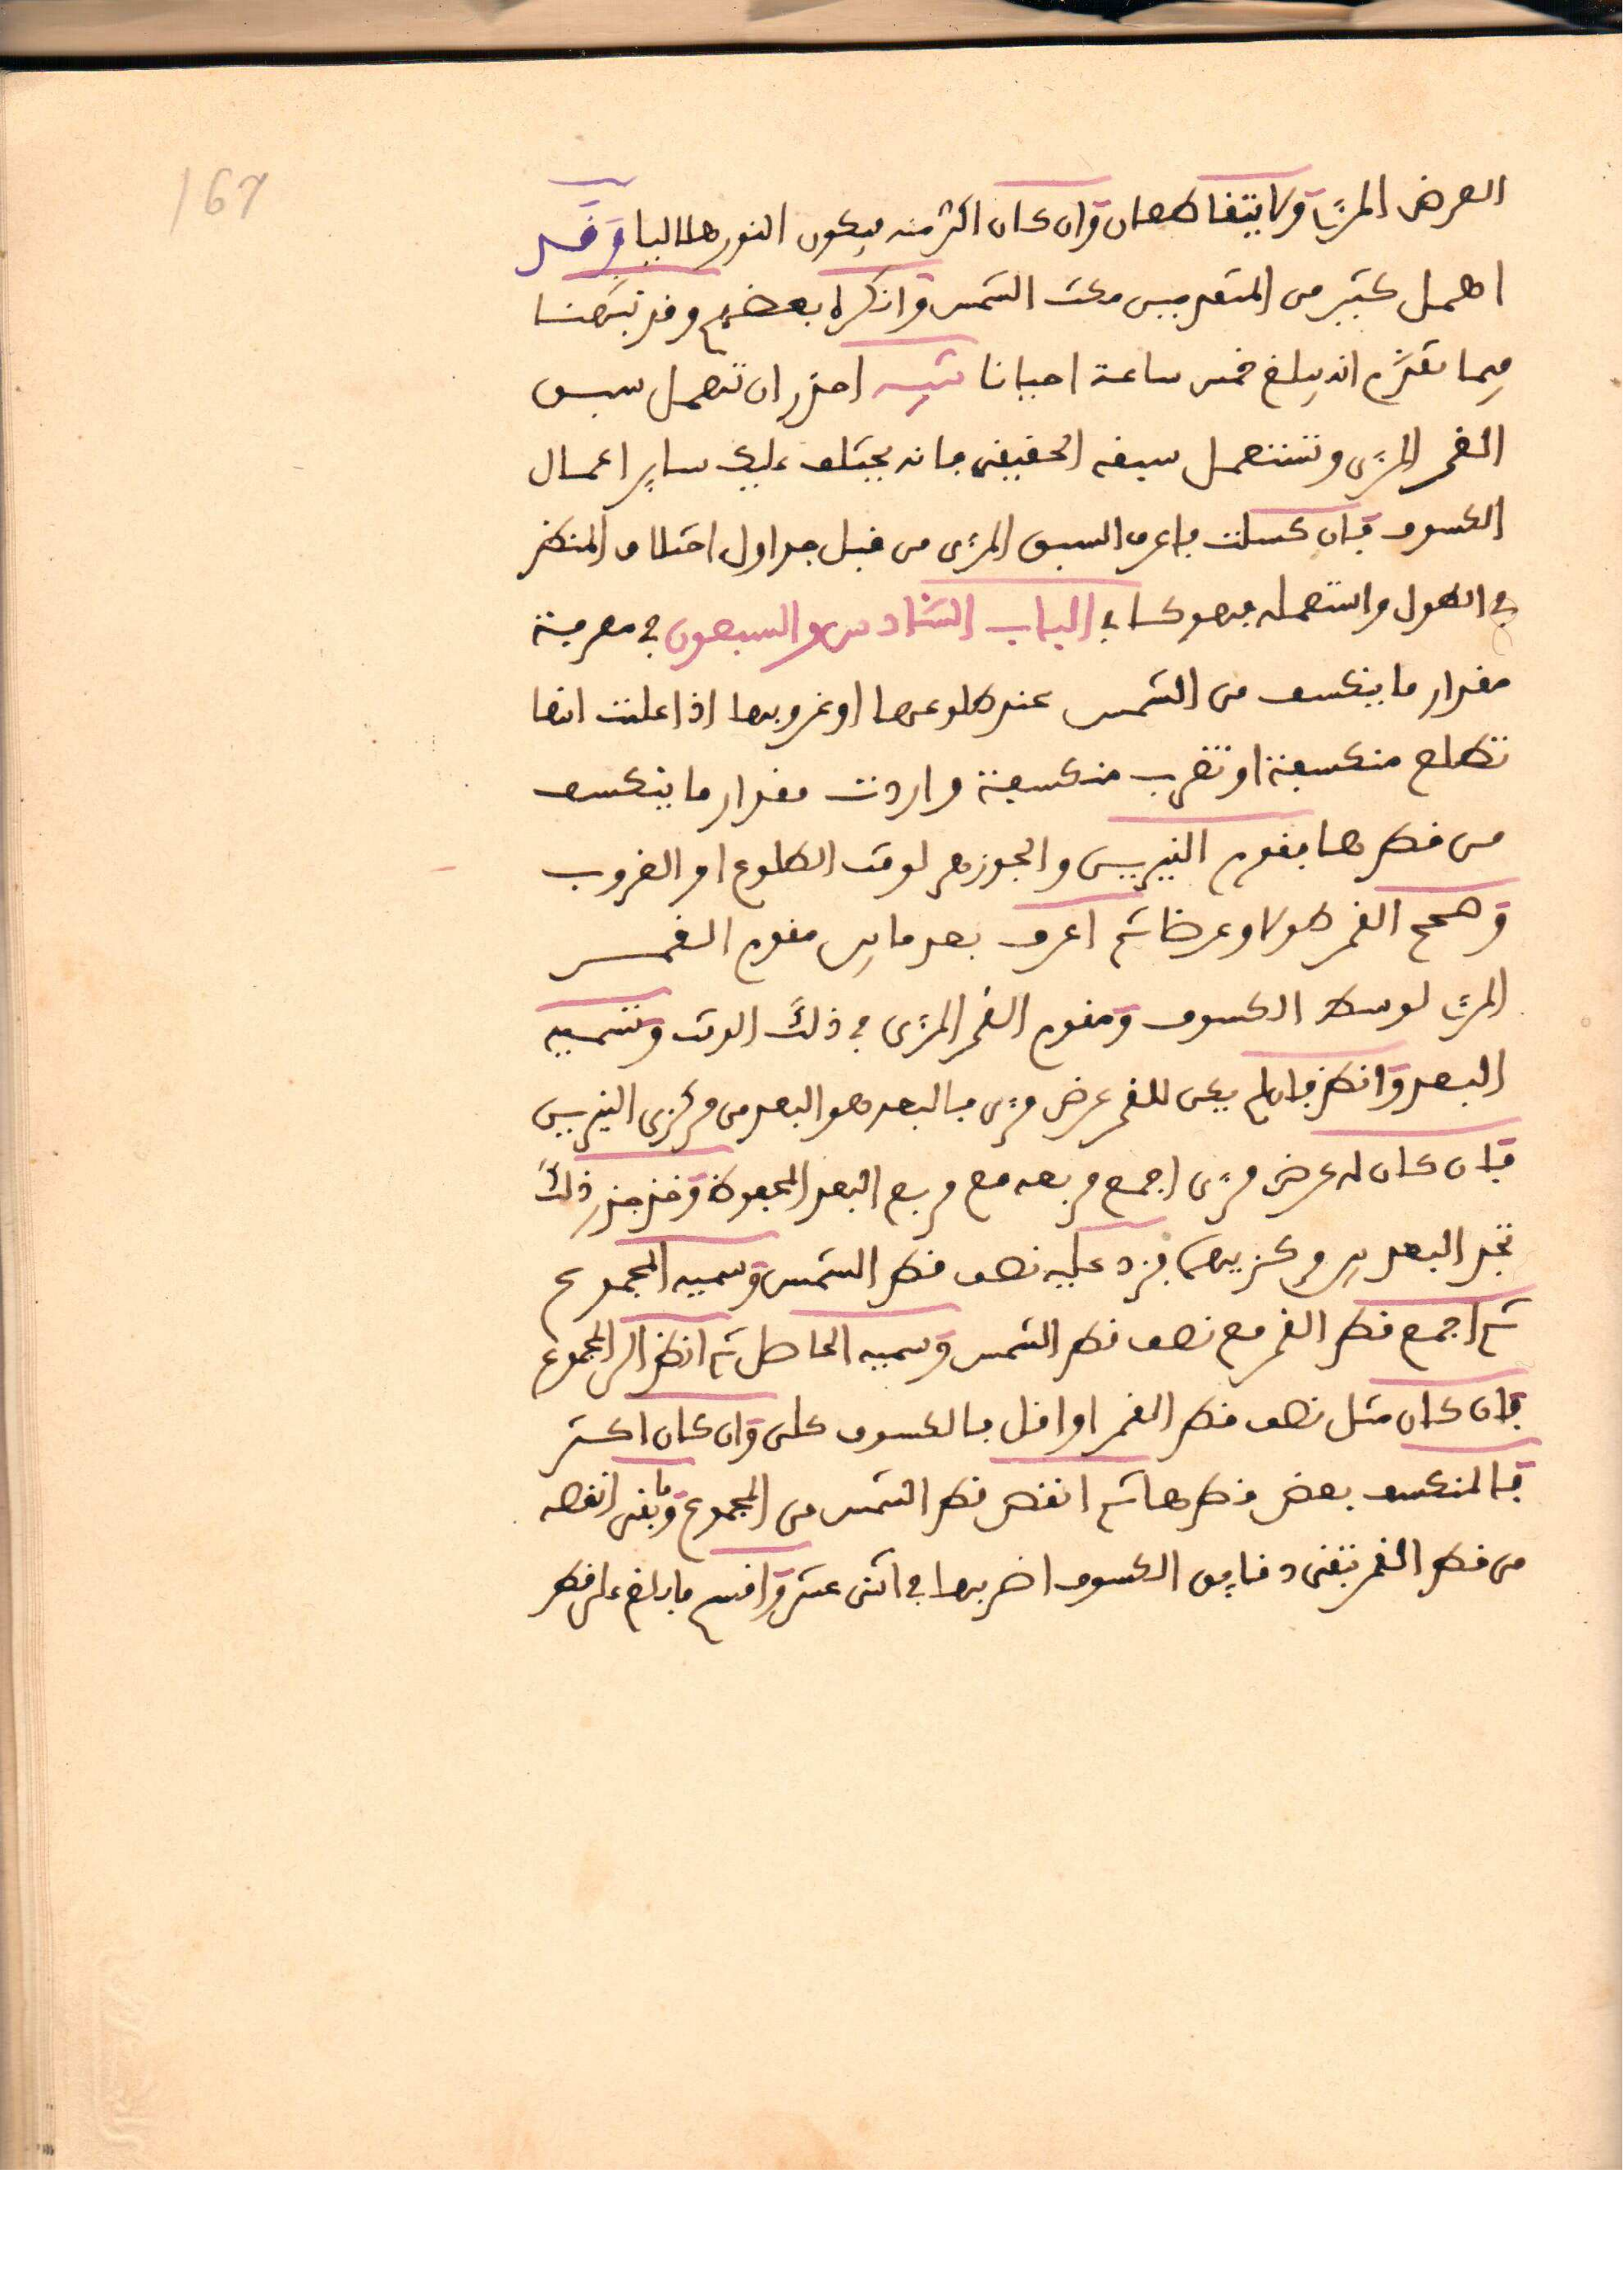 167
العرض المرئيا ولا يتقاطعان وان كان اكثر منه فيكون النور هلاليا وقد
اهمل كثير من المتقدمين مكث الشمس وانكره بعضهم وقد تبينا
فيما تقدم انه يبلغ خمس ساعة احيانا تنبيه احذر ان تهمل سبق
القمر المرئي وتستعمل سبقه الحقيقي فانه يختلف عليك ساير اعمال
الكسوف فان كسلت فاعرف السبق المرئي من قبل جداول اختلاف المنظر
في الطول واستعمله فهو كاف الباب السادس والسبعون في معرفة
مقدار ما ينكسف من الشمس عند طلوعها او غروبها اذا علمت انها
تطلع منكسفة او تغرب منكسفة واردت مقدار ما ينكسف
من قطرها فقوم النيرين والجوزهر لوقت الطلوع او الغروب
وصحح القمر طولا وعرضا ثم اعرف بعد ما بين مقوم القمر
المرئي لوسط الكسوف ومقوم القمر المرئي في ذلك الوقت وتسميه
البعد وانظر فان لم يكن للقمر عرض مرئي فالبعد هو البعد من مركزي النيرين
فان كان له عرض مرئي اجمع مربعه مع مربع البعد المحفوظ وخذ جذر ذلك
تجد البعد بين مركزيهما فزد عليه نصف قطر الشمس وسميه المجموع
ثم اجمع قطر القمر مع نصف قطر الشمس وسميه الحاصل ثم انظر الى المجموع
فان كان مثل نصف قطر القمر او اقل فالكسوف كلى وان كان اكثر
فالمنكسف بعض قطرها ثم انقص قطر الشمس من المجموع وما بقى انقصه
من قطر القمر تبقى دقايق الكسوف اضربها في اثنى عشر واقسم ما بلغ على قطر